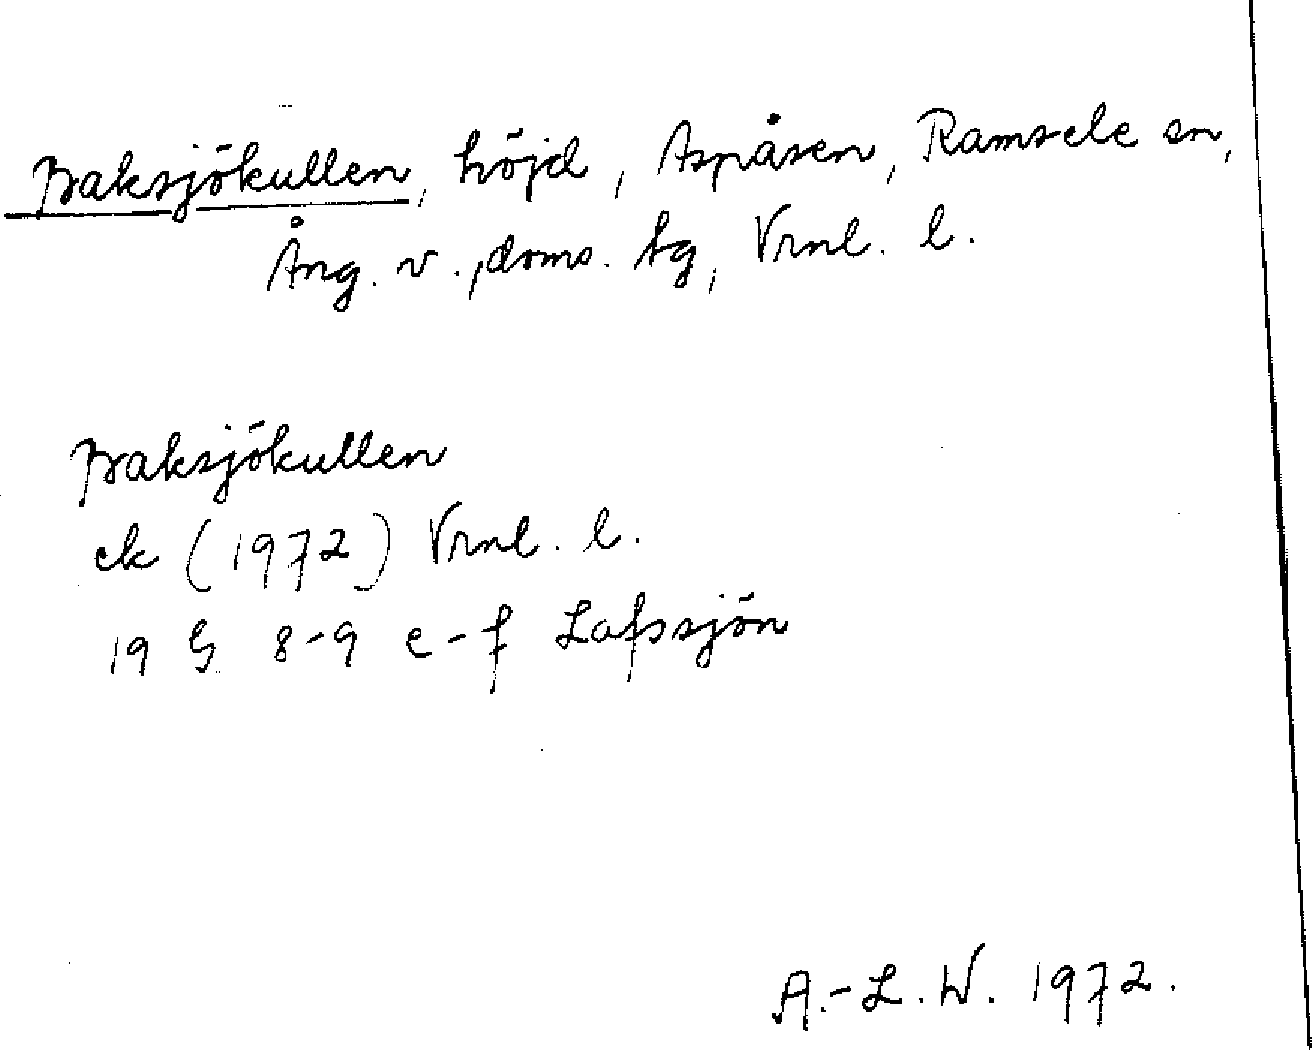 Baksjökullen, höjd, Aspåsen, Ramsele sn,
Ång. v., doms. tg, Vrnl. l.
Baksjökullen
ek (1972) Vrnl. l.
19 G 8-9 e-f Lafssjön
A.-L.W. 1972.